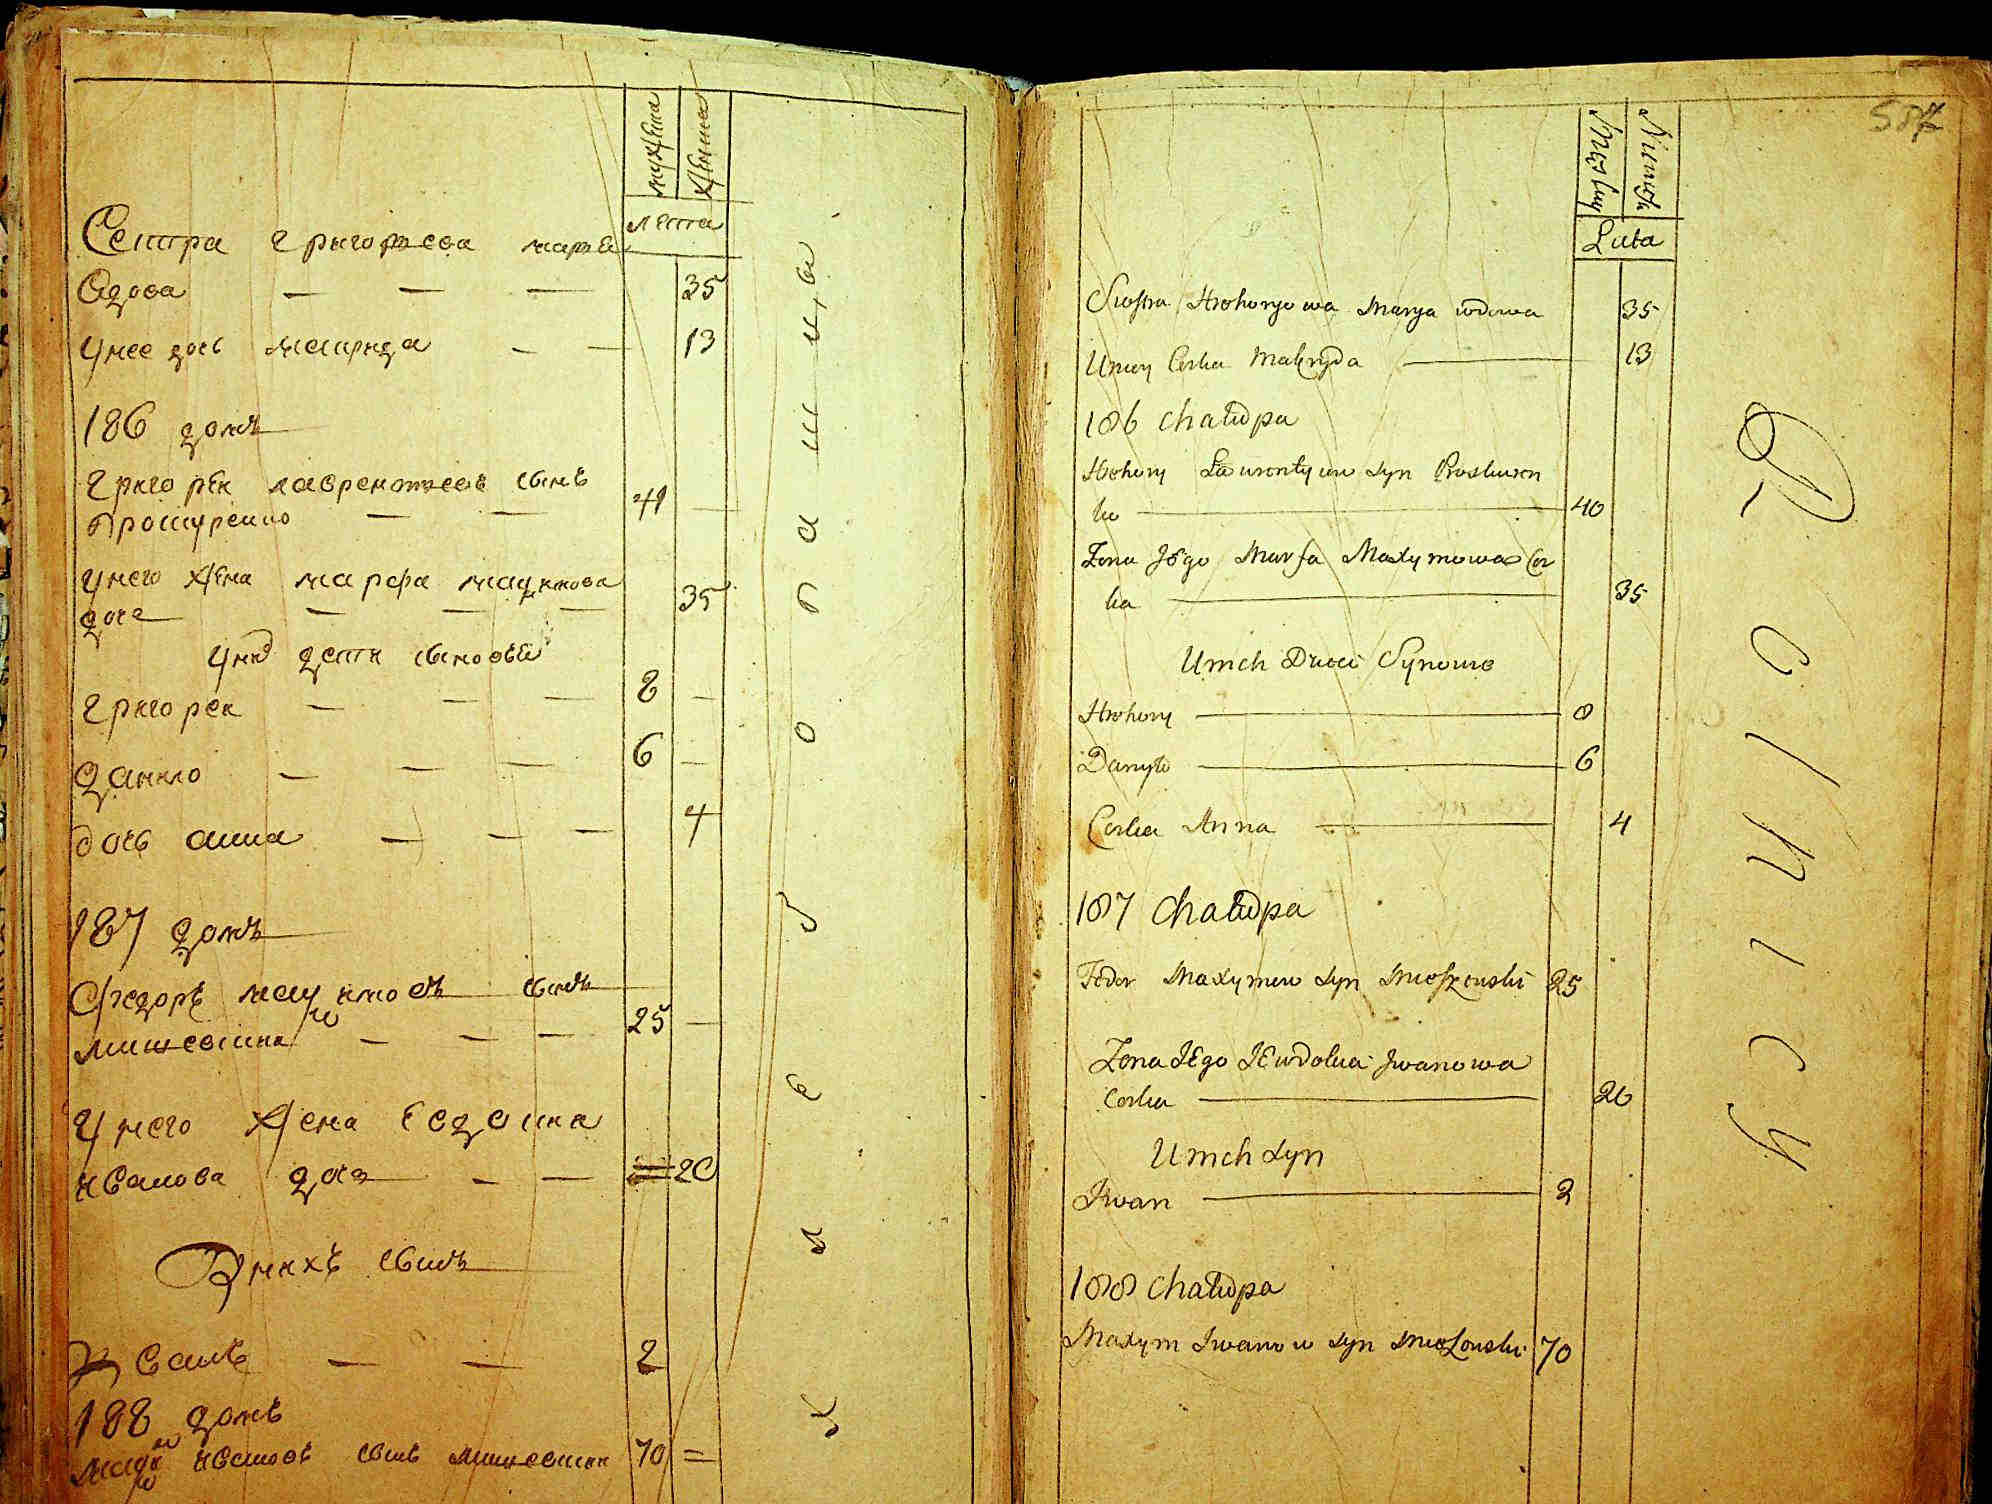 мужеска
женска
лета
Сестра григорьева марья
вдова — — — 35
у нее дочь макрида — — 13
186 домъ
григорей лаврентьевъ сынъ
прошуренко — — 41 —
у него жена марфа маѯимова
дочь — — — 35
у них дети сыновьи
григорей — — — 8 —
данило — — — 6 —
дочь анна — — — 4
187 домъ
Ѳедоръ маѯимовъ сынъ
мишевски — — — 25 —
у него жена евдокия
иванова дочь — — 20
У нихъ сынъ
Иванъ — — 2
188 домъ
маѯим ивановъ сынъ мишевски 70 =
587
Męsky
Lieta
Siostra Hrehoryowa Marya wdowa 35
U niey Corka Makryda 13
186 chałupa
Hrehory Ławrentyiew syn Proshuren
ko 40
Żona Jego Marfa Maxymowa Cor
ka 35
U nich Dzieci Synowie
Hrehory 8
Danyło 6
Corka Anna 4
187 Chałupa
Fedor Maxymow syn Mieszewski 25
Żona Jego Jewdokia Jwanowa
Corka 20
U nich syn
Jwan 2
188 Chałupa
Maxym Jwanow syn 70
Rolnicy